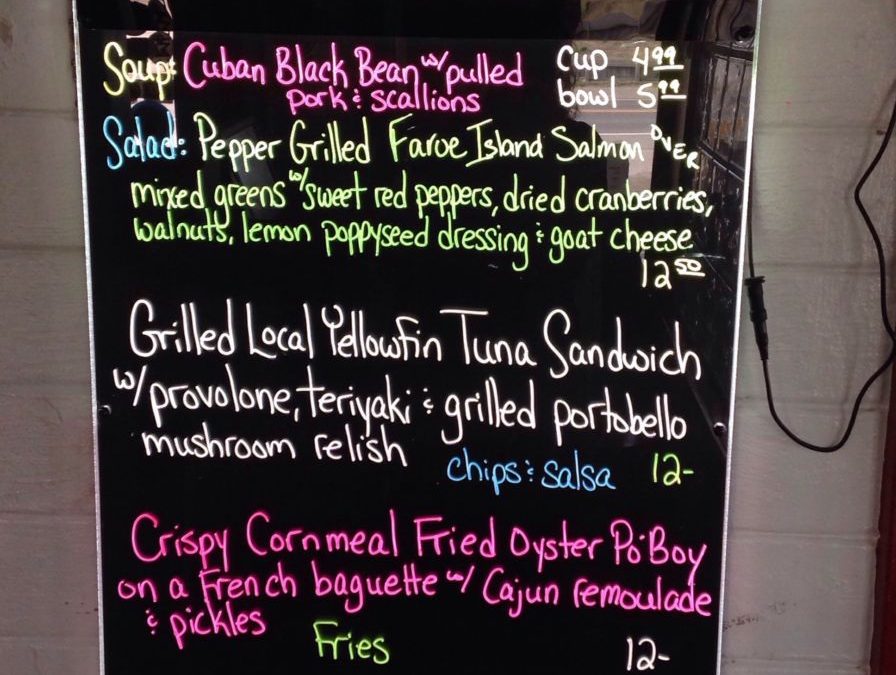 Soup: Cuban Black Bean w/ pulled Cup 4.99
pork & scallions bowl 5.99
Salad: Pepper Grilled Faroe Island Salmon OVER
mixed greens w/ sweet red peppers, dried cranberries,
walnuts, lemon poppyseed dressing & goat cheese
12.50
Grilled Local Yellowfin Tuna Sandwich
w/ provolone, teriyaki & grilled portobello
mushroom relish
chips & salsa 12-
Crispy Cornmeal Fried Oyster Po'Boy
on a French baguette w/ Cajun remoulade
& pickles
Fries 12-